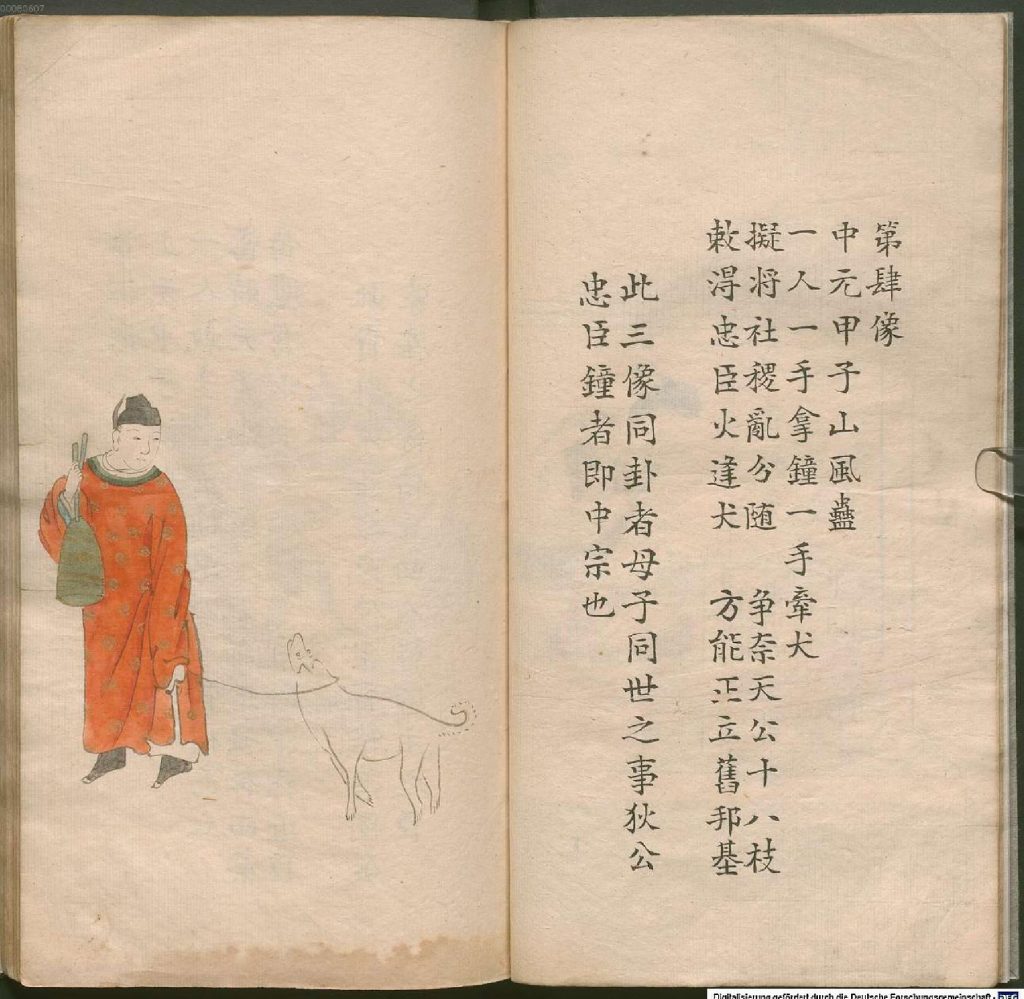 00060607
第肆像
中元甲子山風蠱
一人一手拿鐘一手牽犬
擬將社稷亂分随 争奈天公十八枝
敕淂忠臣火逢犬 方能正立舊邦基
此三像同卦者母子同世之事狄公
忠臣鐘者即中宗也
Digitalisierung gefördert durch die Deutsche Forschungsgemeinschaft - DFG